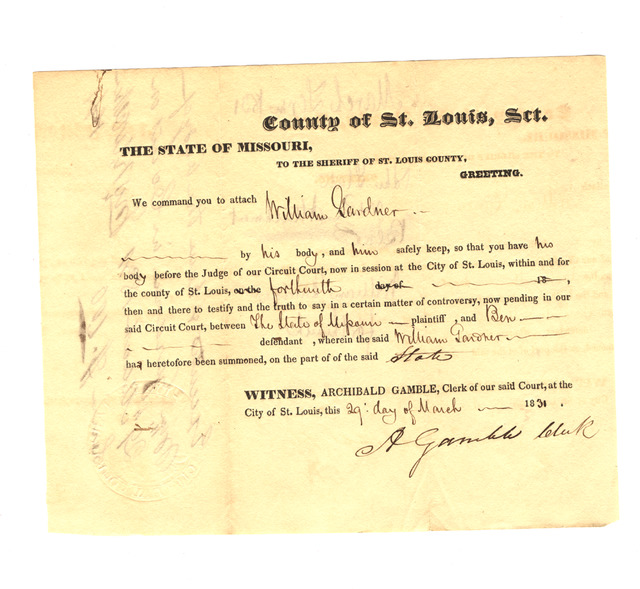 County of St. Louis, Sct.
THE STATE OF MISSOURI,
TO THE SHERIFF OF ST. LOUIS COUNTY,
GREETING.
We command you to attach William Gardner
by his body, and him safely keep, so that you have his
body before the Judge of our Circuit Court, now in session at the City of St. Louis, within and for
the county of St. Louis, on the forthwith day of 18 ,
then and there to testify and the truth to say in a certain matter of controversy, now pending in our
said Circuit Court, between The State of Missouri plaintiff, and Ben
defendant, wherein the said William Gardner
has heretofore been summoned, on the part of the said State
WITNESS, ARCHIBALD GAMBLE, Clerk of our said Court, at the
City of St. Louis, this 29th day of March 1831.
A Gamble Clerk